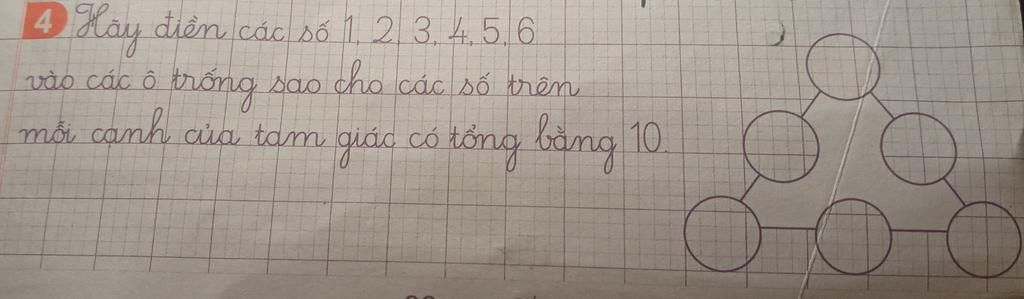 4 Hãy điền các số 1, 2, 3, 4, 5, 6
vào các ô trống sao cho các số trên
mỗi cạnh của tam giác có tổng bằng 10.